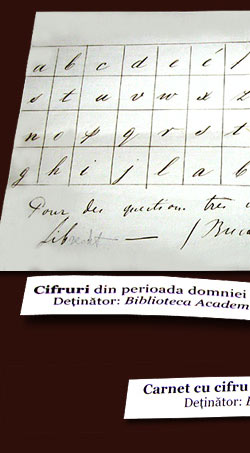 a b c d e é f
s t u v w x z
n o p q r s t
g h i j l a b
Pour des questions très
Lib
Cifruri din perioada domniei
Deținător: Biblioteca Academ
Carnet cu cifru
Deținător: B